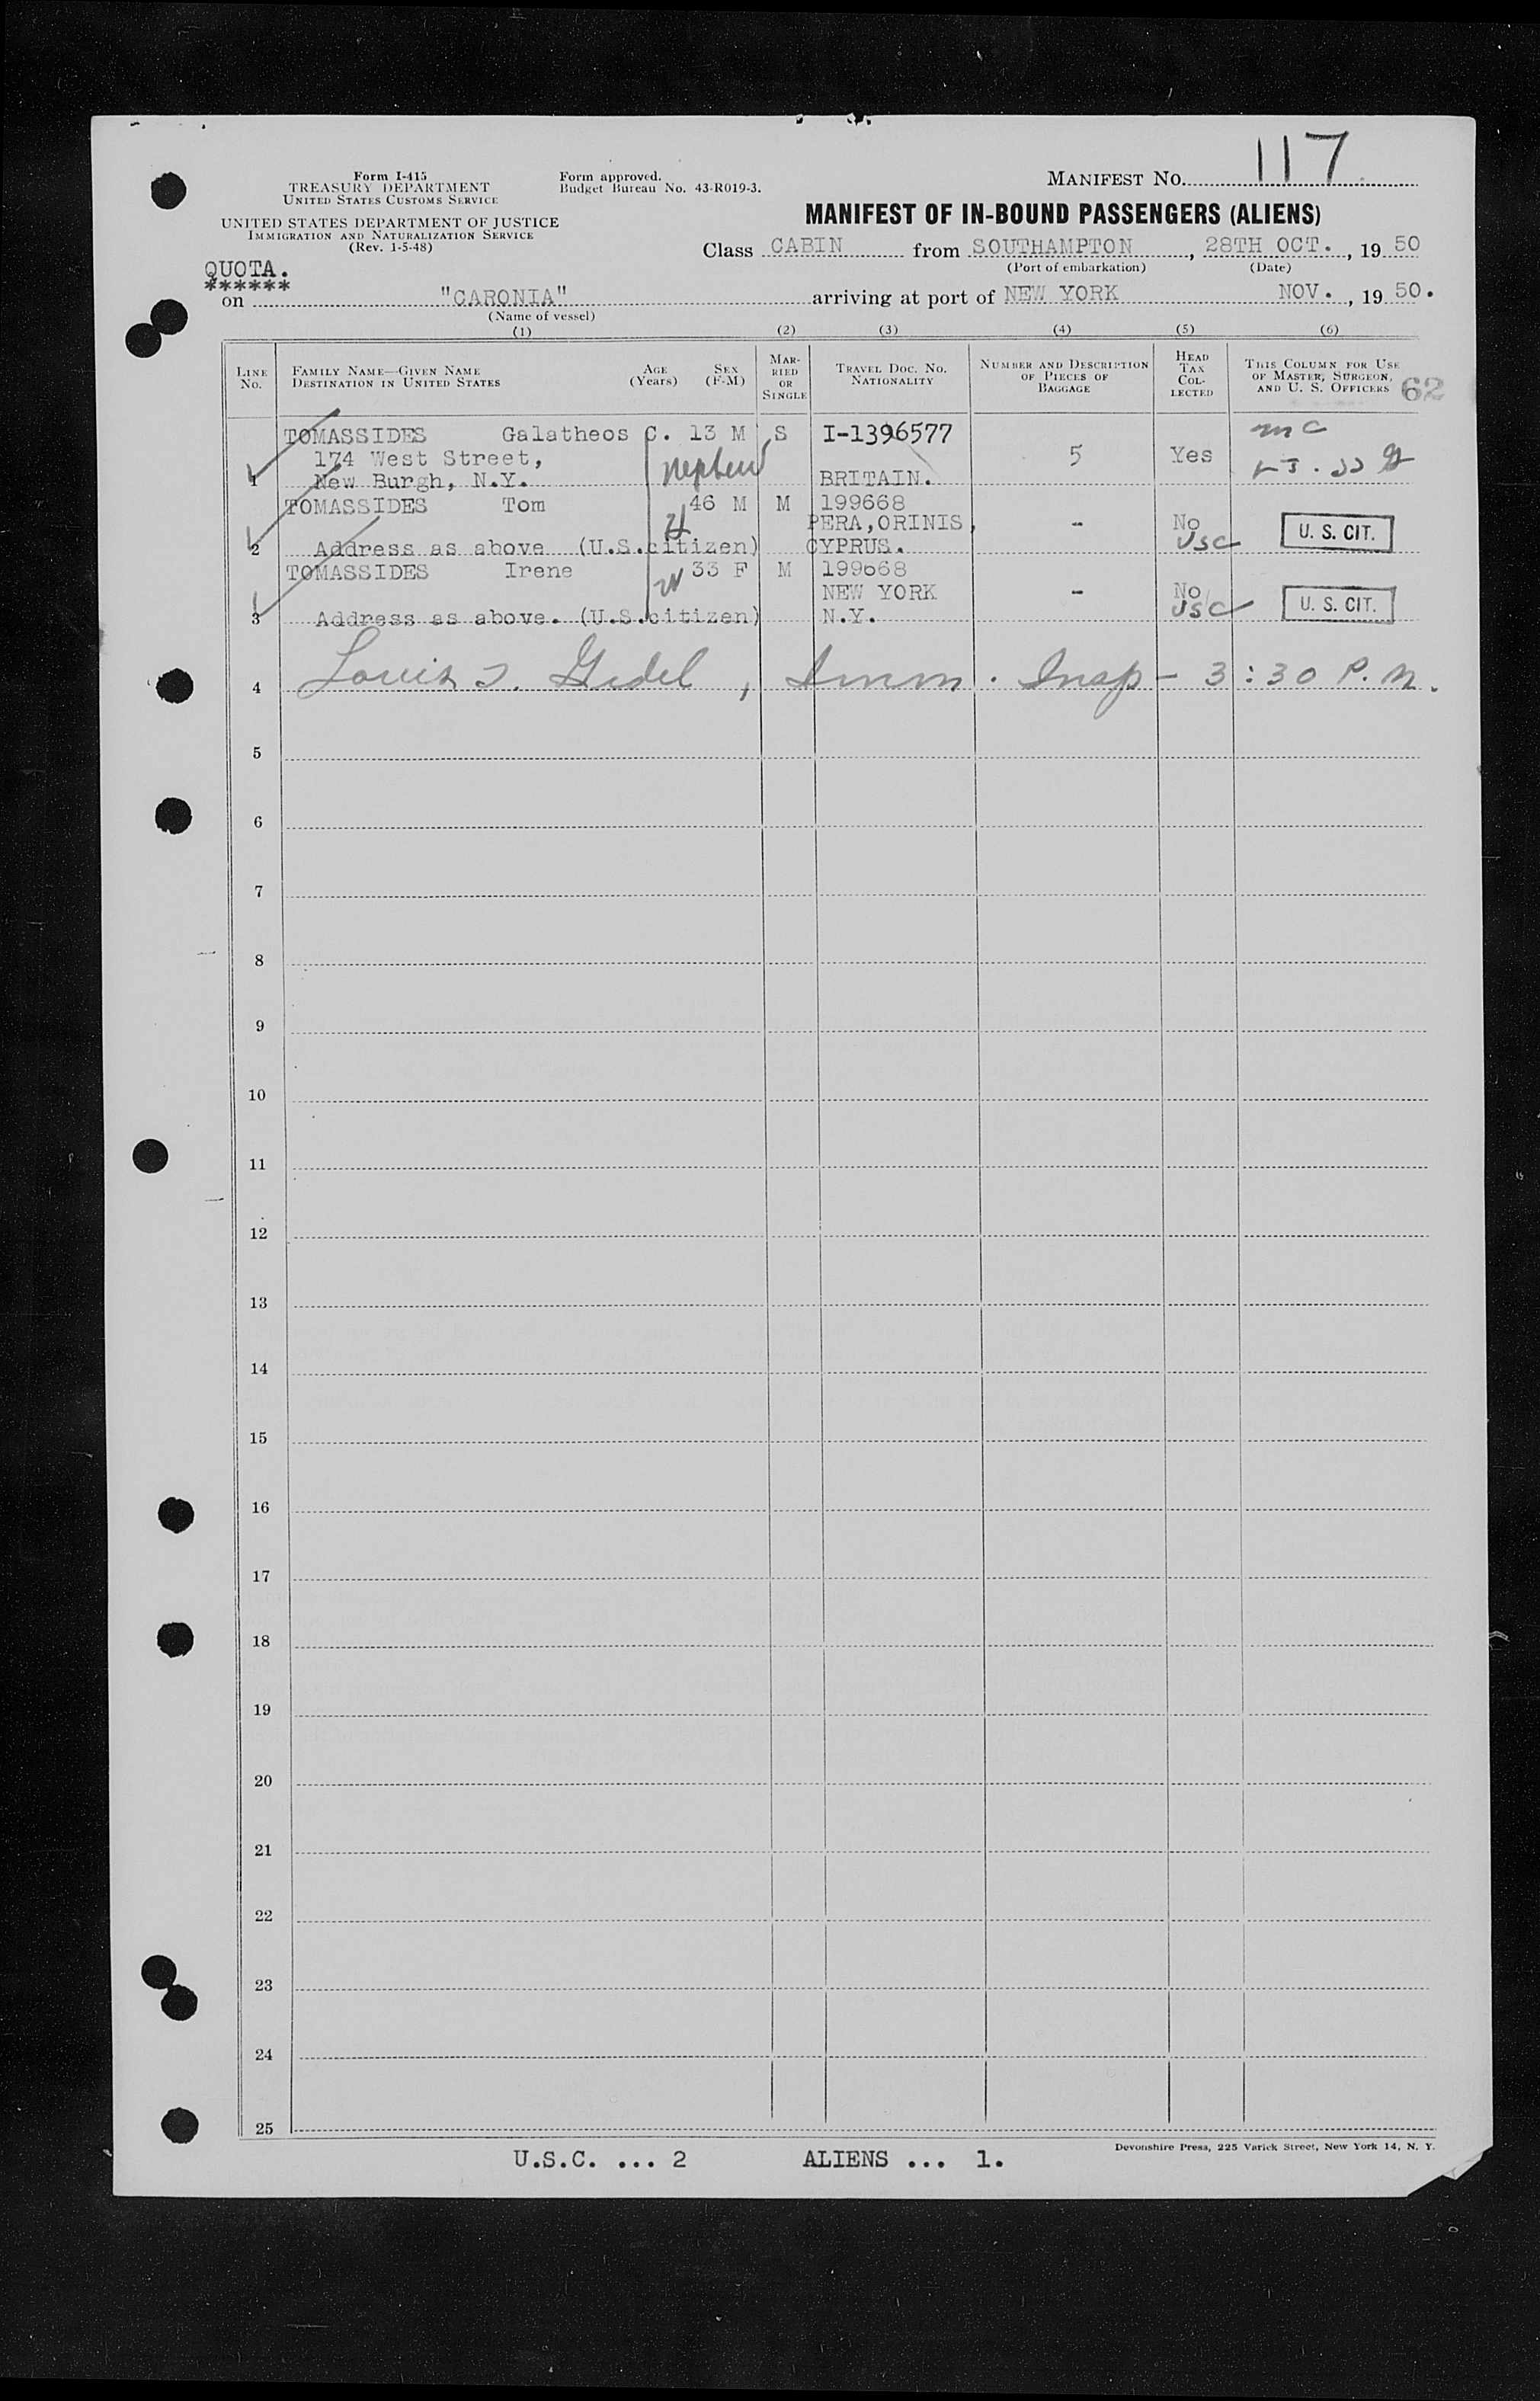 117
Form I-415
TREASURY DEPARTMENT
UNITED STATES CUSTOMS SERVICE
Form approved.
Budget Bureau No. 43-R019-3.
MANIFEST NO.
UNITED STATES DEPARTMENT OF JUSTICE
IMMIGRATION AND NATURALIZATION SERVICE
(Rev. 1-5-48)
MANIFEST OF IN-BOUND PASSENGERS (ALIENS)
Class CABIN from SOUTHAMPTON, 28TH OCT., 19 50
(Port of embarkation) (Date)
QUOTA.
******
on "CARONIA" arriving at port of NEW YORK NOV., 19 50.
(Name of vessel)
(1) (2) (3) (4) (5) (6)
LINE NO.
FAMILY NAME—GIVEN NAME
DESTINATION IN UNITED STATES
AGE (Years)
SEX (F-M)
MARRIED OR SINGLE
TRAVEL DOC. NO.
NATIONALITY
NUMBER AND DESCRIPTION OF PIECES OF BAGGAGE
HEAD TAX COLLECTED
THIS COLUMN FOR USE OF MASTER, SURGEON, AND U. S. OFFICERS
62
TOMASSIDES Galatheos C. 13 M S I-1396577
174 West Street, nephew 5 Yes
1 New Burgh, N.Y. BRITAIN.
TOMASSIDES Tom 46 M M 199668
H PERA, ORINIS, - No
2 Address as above (U.S.citizen) CYPRUS. USC U. S. CIT.
TOMASSIDES Irene 33 F M 199668
W NEW YORK - No
3 Address as above. (U.S.citizen) N.Y. USC U. S. CIT.
4 Imm. Insp - 3:30 P.M.
5
6
7
8
9
10
11
12
13
14
15
16
17
18
19
20
21
22
23
24
25
Devonshire Press, 225 Varick Street, New York 14, N. Y.
U.S.C. ... 2 ALIENS ... 1.